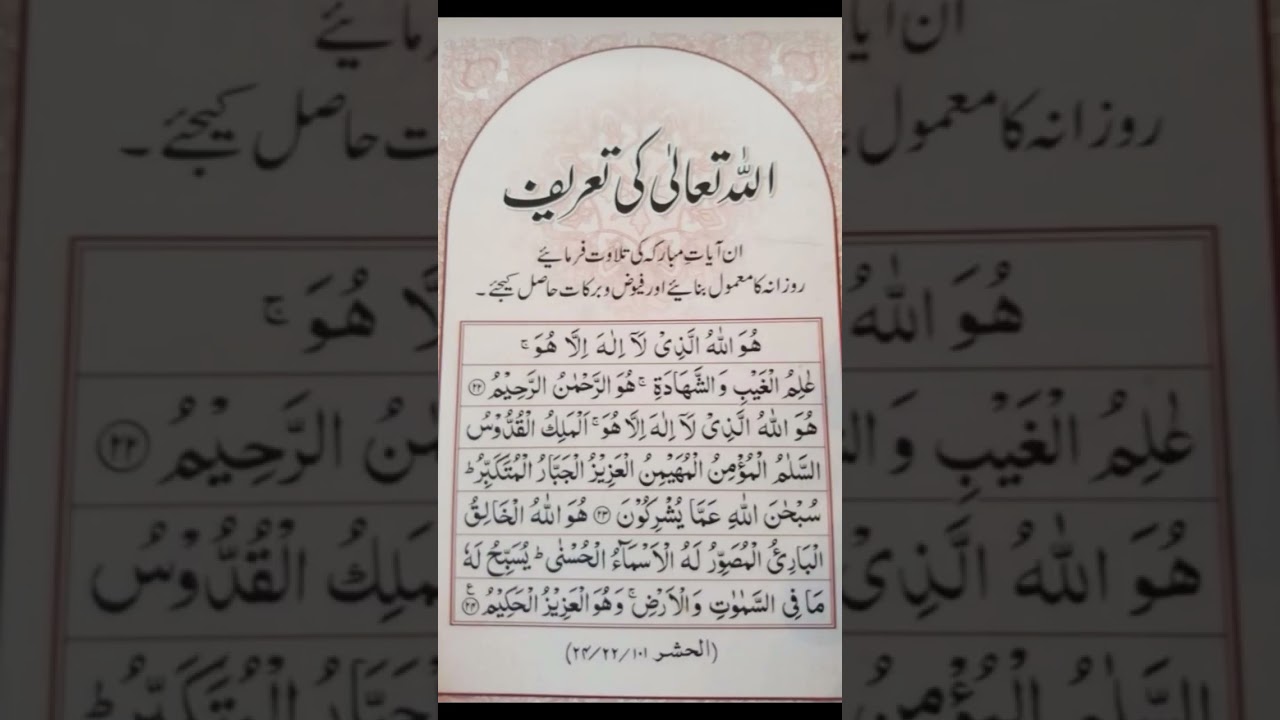 اللہ تعالیٰ کی تعریف
ان آیاتِ مبارکہ کی تلاوت فرمائیے
روزانہ کا معمول بنائیے اور فیوض و برکات حاصل کیجئے ۔
هُوَ اللّٰهُ الَّذِیْ لَاۤ اِلٰهَ اِلَّا هُوَ ۚ
عٰلِمُ الْغَیْبِ وَ الشَّهَادَةِ ۚ هُوَ الرَّحْمٰنُ الرَّحِیْمُ ﴿۲۲﴾
هُوَ اللّٰهُ الَّذِیْ لَاۤ اِلٰهَ اِلَّا هُوَ ۚ اَلْمَلِكُ الْقُدُّوْسُ
السَّلٰمُ الْمُؤْمِنُ الْمُهَیْمِنُ الْعَزِیْزُ الْجَبَّارُ الْمُتَكَبِّرُ ؕ
سُبْحٰنَ اللّٰهِ عَمَّا یُشْرِكُوْنَ ﴿۲۳﴾ هُوَ اللّٰهُ الْخَالِقُ
الْبَارِئُ الْمُصَوِّرُ لَهُ الْاَسْمَآءُ الْحُسْنٰی ؕ یُسَبِّحُ لَهٗ
مَا فِی السَّمٰوٰتِ وَ الْاَرْضِ ۚ وَ هُوَ الْعَزِیْزُ الْحَكِیْمُ ﴿۲۴﴾ ع
(الحشر ۱۰۱/۲۲/۲۴)